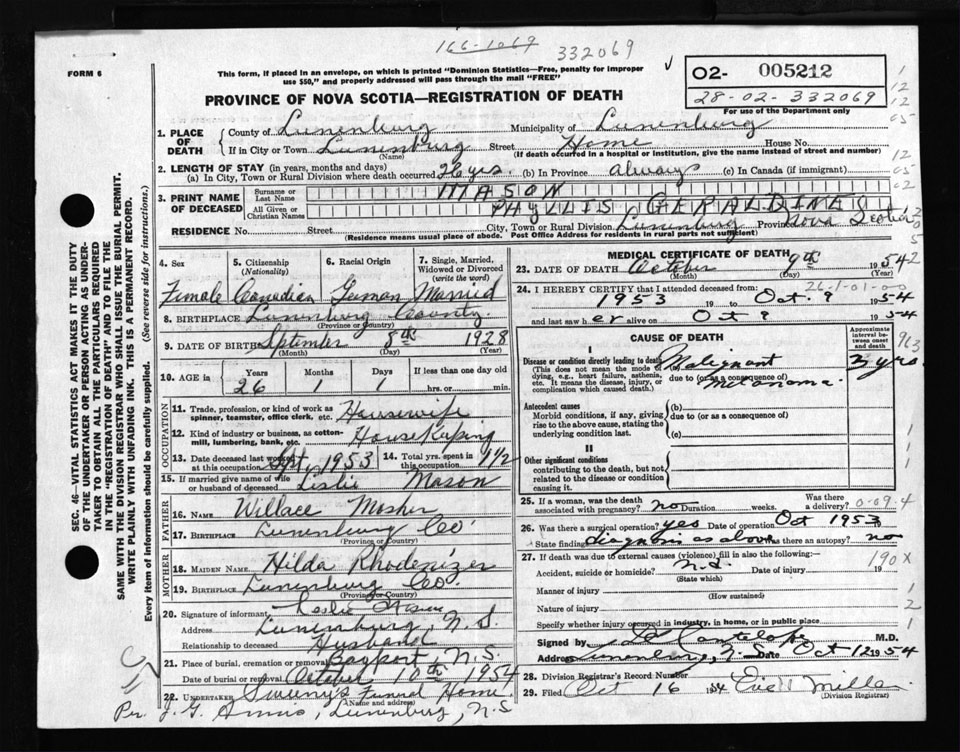 166-1069 332069
FORM 6
This form, if placed in an envelope, on which is printed "Dominion Statistics—Free, penalty for improper use $50," and properly addressed will pass through the mail "FREE"
02- 005212
28-02-332069
For use of the Department only
PROVINCE OF NOVA SCOTIA—REGISTRATION OF DEATH
1. PLACE OF DEATH
County of Lunenburg Municipality of Lunenburg
If in City or Town Lunenburg (Name) Street Home House No.
(If death occurred in a hospital or institution, give the name instead of street and number)
2. LENGTH OF STAY (in years, months and days)
(a) In City, Town or Rural Division where death occurred 26 yrs. (b) In Province always (c) In Canada (if immigrant)
3. PRINT NAME OF DECEASED
Surname or Last Name MASON
All Given or Christian Names PHYLLIS GERALDINE
RESIDENCE No. Street City, Town or Rural Division Lunenburg Province Nova Scotia
(Residence means usual place of abode. Post Office Address for residents in rural parts not sufficient)
4. Sex Female
5. Citizenship (Nationality) Canadian
6. Racial Origin German
7. Single, Married, Widowed or Divorced (write the word) Married
8. BIRTHPLACE Lunenburg County
(Province or Country)
9. DATE OF BIRTH September 8th 1928
(Month) (Day) (Year)
10. AGE in Years 26 Months 1 Days 1 If less than one day old hrs. or min.
OCCUPATION
11. Trade, profession, or kind of work as spinner, teamster, office clerk, etc. Housewife
12. Kind of industry or business, as cotton-mill, lumbering, bank, etc. House Keeping
13. Date deceased last worked at this occupation Sept, 1953 14. Total yrs. spent in this occupation 1 1/2
15. If married give name of wife or husband of deceased Leslie Mason
FATHER
16. NAME Willace Mosher
17. BIRTHPLACE Lunenburg Co
(Province or Country)
MOTHER
18. MAIDEN NAME Hilda Rhodenizer
19. BIRTHPLACE Lunenburg Co.
(Province or Country)
20. Signature of informant Leslie Mason
Address Lunenburg, N.S.
Relationship to deceased Husband
21. Place of burial, cremation or removal Bayport N.S.
Date of burial or removal October 10th 1954
22. UNDERTAKER Sweeny's Funeral Home
(Name and address)
Per. J. G. Annis, Lunenburg, N.S
MEDICAL CERTIFICATE OF DEATH
23. DATE OF DEATH October 9th 1954
(Month) (Day) (Year)
24. I HEREBY CERTIFY that I attended deceased from:
26-1-01-00
1953 19 to Oct. 9 1954
and last saw her alive on Oct 9 1954
CAUSE OF DEATH
Approximate interval between onset and death
I
Disease or condition directly leading to death
(This does not mean the mode of dying, e.g., heart failure, asthenia, etc. It means the disease, injury, or complication which caused death.)
(a) Malignant Melanoma 3 yrs
due to (or as a consequence of)
Antecedent causes
Morbid conditions, if any, giving rise to the above cause, stating the underlying condition last.
(b)
due to (or as a consequence of)
(c)
II
Other significant conditions contributing to the death, but not related to the disease or condition causing it.
25. If a woman, was the death associated with pregnancy? no Duration weeks. Was there a delivery?
26. Was there a surgical operation? yes Date of operation Oct 1953
State findings diagnosis as above Was there an autopsy? no
27. If death was due to external causes (violence) fill in also the following:—
190 X
Accident, suicide or homicide? Date of injury 19
(State which)
Manner of injury
(How sustained)
Nature of injury
Specify whether injury occurred in industry, in home, or in public place
Signed by Cantelope M.D.
Address Lunenburg, N.S. Date Oct 12 1954
28. Division Registrar's Record Number
29. Filed Oct 16 1954
(Division Registrar)
SEC. 46—VITAL STATISTICS ACT MAKES IT THE DUTY OF THE UNDERTAKER OR PERSON ACTING AS UNDERTAKER TO OBTAIN ALL THE PARTICULARS REQUIRED IN THE "REGISTRATION OF DEATH" AND TO FILE THE SAME WITH THE DIVISION REGISTRAR WHO SHALL ISSUE THE BURIAL PERMIT.
WRITE PLAINLY WITH UNFADING INK. THIS IS A PERMANENT RECORD.
Every item of Information should be carefully supplied. (See reverse side for instructions.)